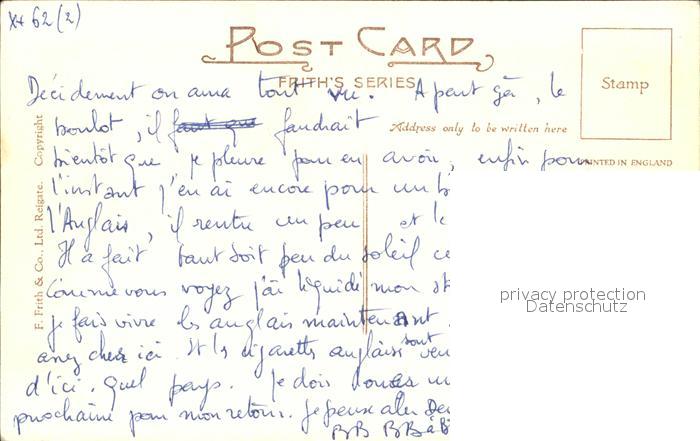 X+ 62 (2)
POST CARD
FRITH'S SERIES
Stamp
Décidement on aura tout vu. A part ça, le
boulot, il faut que faudrait
Address only to be written here
bientôt que je pleure pour en avoir, enfin pour
PRINTED IN ENGLAND
l'instant j'en ai encore pour un
l'Anglais, il rentre un peu et
Il a fait tant soit peu du soleil ce
Comme vous voyez j'ai liquidé mon st
je fais vivre les anglais maintenant.
assez cher ici. Et les cigarettes anglaises sont
d'ici. Quel pays. Je dois
prochaine pour mon retour. Je peux aller
BB BB
F. Frith & Co., Ltd. Reigate. Copyright
privacy protection
Datenschutz